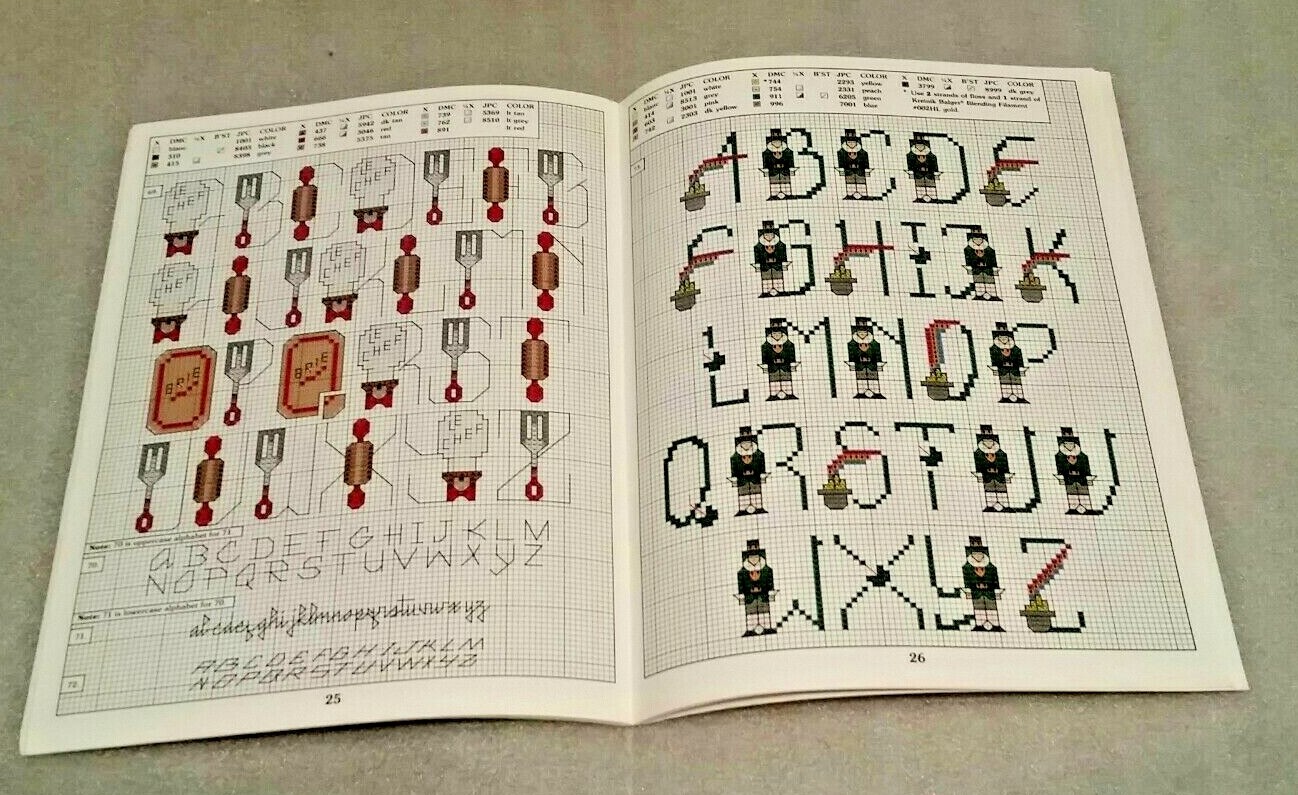 X DMC ¼X B'ST JPC COLOR X DMC ¼X JPC COLOR X DMC ¼X JPC COLOR
blanc 1001 white 437 5942 dk tan 739 5369 lt tan
310 8403 black 666 3046 red 762 8510 lt grey
415 8398 grey 738 5375 tan 891 lt red
LE CHEF LE CHEF
LE CHEF LE CHEF
BRIE BRIE LE CHEF
LE CHEF
Note: 70 is uppercase alphabet for 71.
70.
A B C D E F G H I J K L M
N O P Q R S T U V W X Y Z
Note: 71 is lowercase alphabet for 70.
71.
a b c d e f g h i j k l m n o p q r s t u v w x y z
72.
A B C D E F G H I J K L M
N O P Q R S T U V W X Y Z
25
X DMC ¼X JPC COLOR X DMC ¼X B'ST JPC COLOR X DMC ¼X B'ST JPC COLOR
blanc 1001 white *744 2293 yellow 3799 8999 dk grey
414 8513 grey 754 2331 peach * Use 2 strands of floss and 1 strand of
603 3001 pink 911 6205 green Kreinik Balger® Blending Filament
742 2303 dk yellow 996 7001 blue #002HL gold.
A B C D E
F G H I J K
L M N O P
Q R S T U V
W X Y Z
26